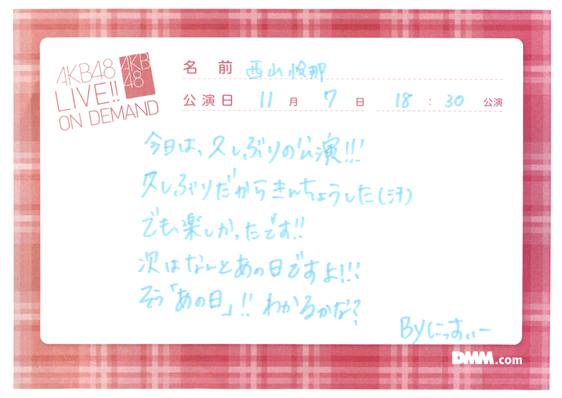 AKB48
LIVE!!
ON DEMAND
AKB
48
名 前 西山怜那
公演日 11 月 7 日 18 : 30 公演
今日は、久しぶりの公演!!!
久しぶりだからきんちょうした(汗)
でも、楽しかったです!!
次はなんとあの日ですよ!!!
そう「あの日」!! わかるかな?
Byにっすぃー
DMM.com